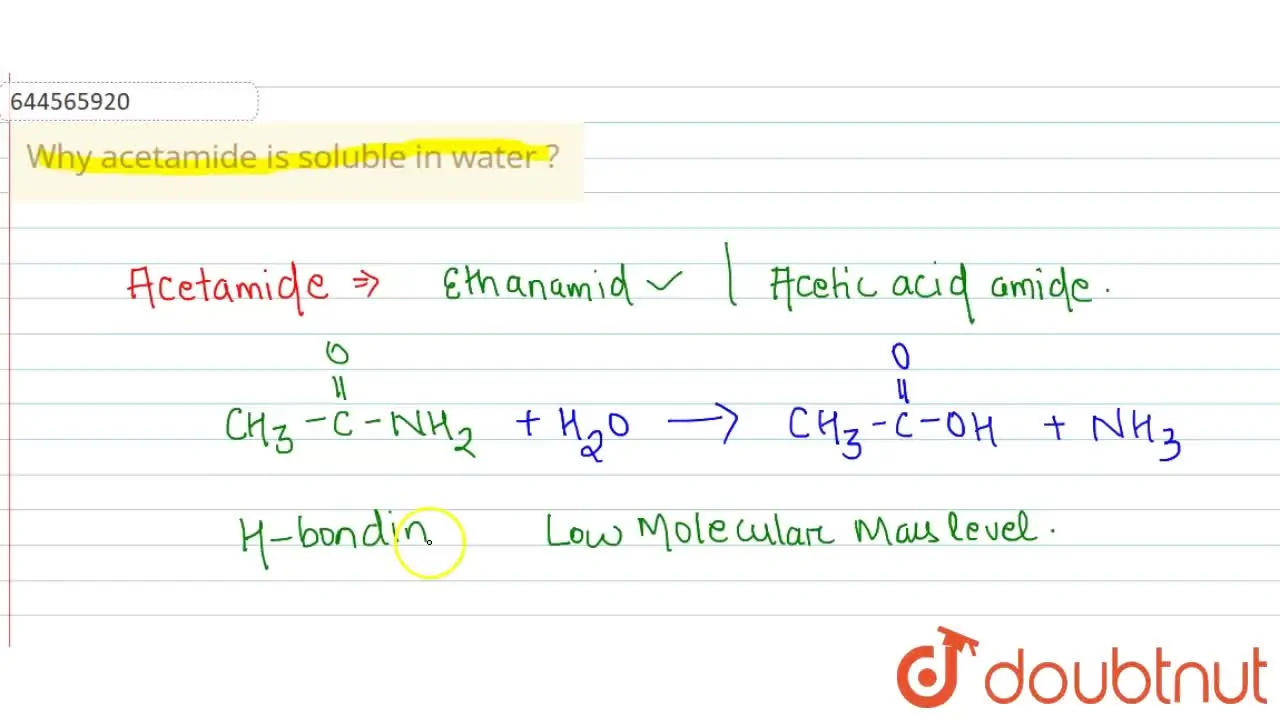 644565920
Why acetamide is soluble in water ?
Acetamide ⇒ Ethanamid ✓ | Acetic acid amide.
O O
|| ||
CH3 - C - NH2 + H2O → CH3 - C - OH + NH3
H-bondin Low Molecular Mass level.
doubtnut